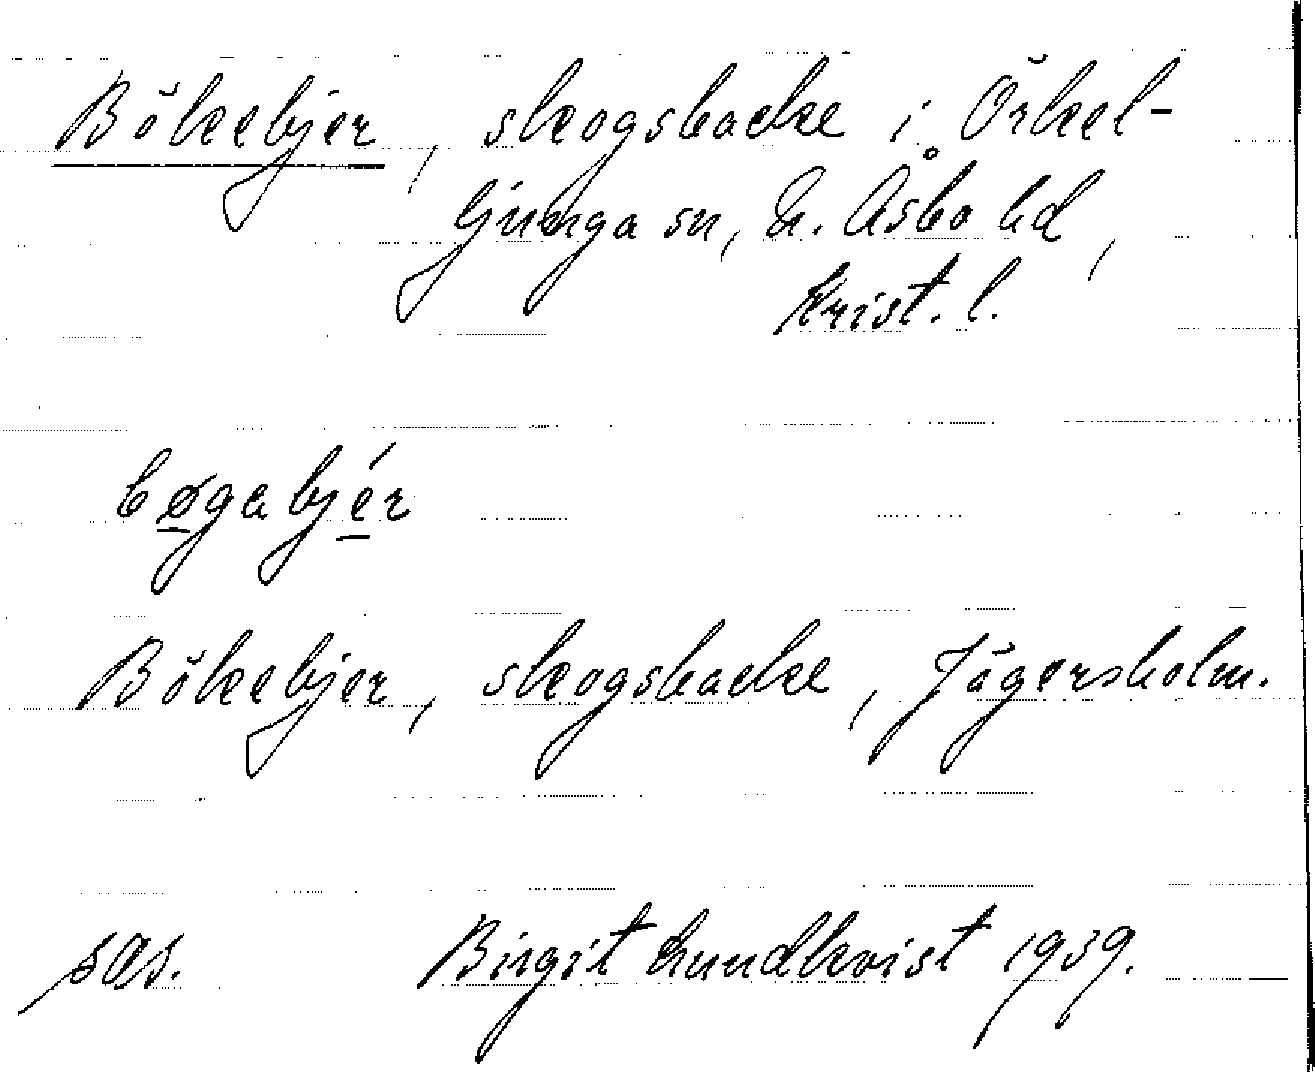 Bökebjer, skogsbacke i Örkel-
ljunga sn, N. Åsbo hd,
Krist. l.
bøgabjér
Bökebjer, skogsbacke, Jägersholm.
sås. Birgit Lundkvist 1939.